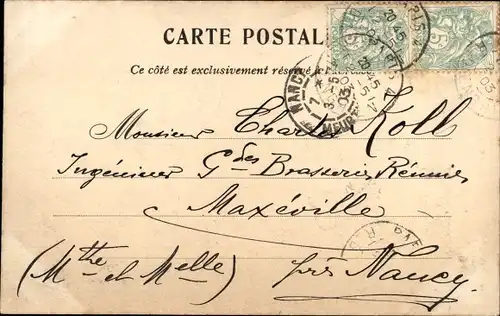 CARTE POSTALE
Ce côté est exclusivement réservé à l'adresse
Monsieur Charles Koll
Ingénieur Gdes Brasseries Réunies
Maxéville
(Mthe et Melle) près Nancy.